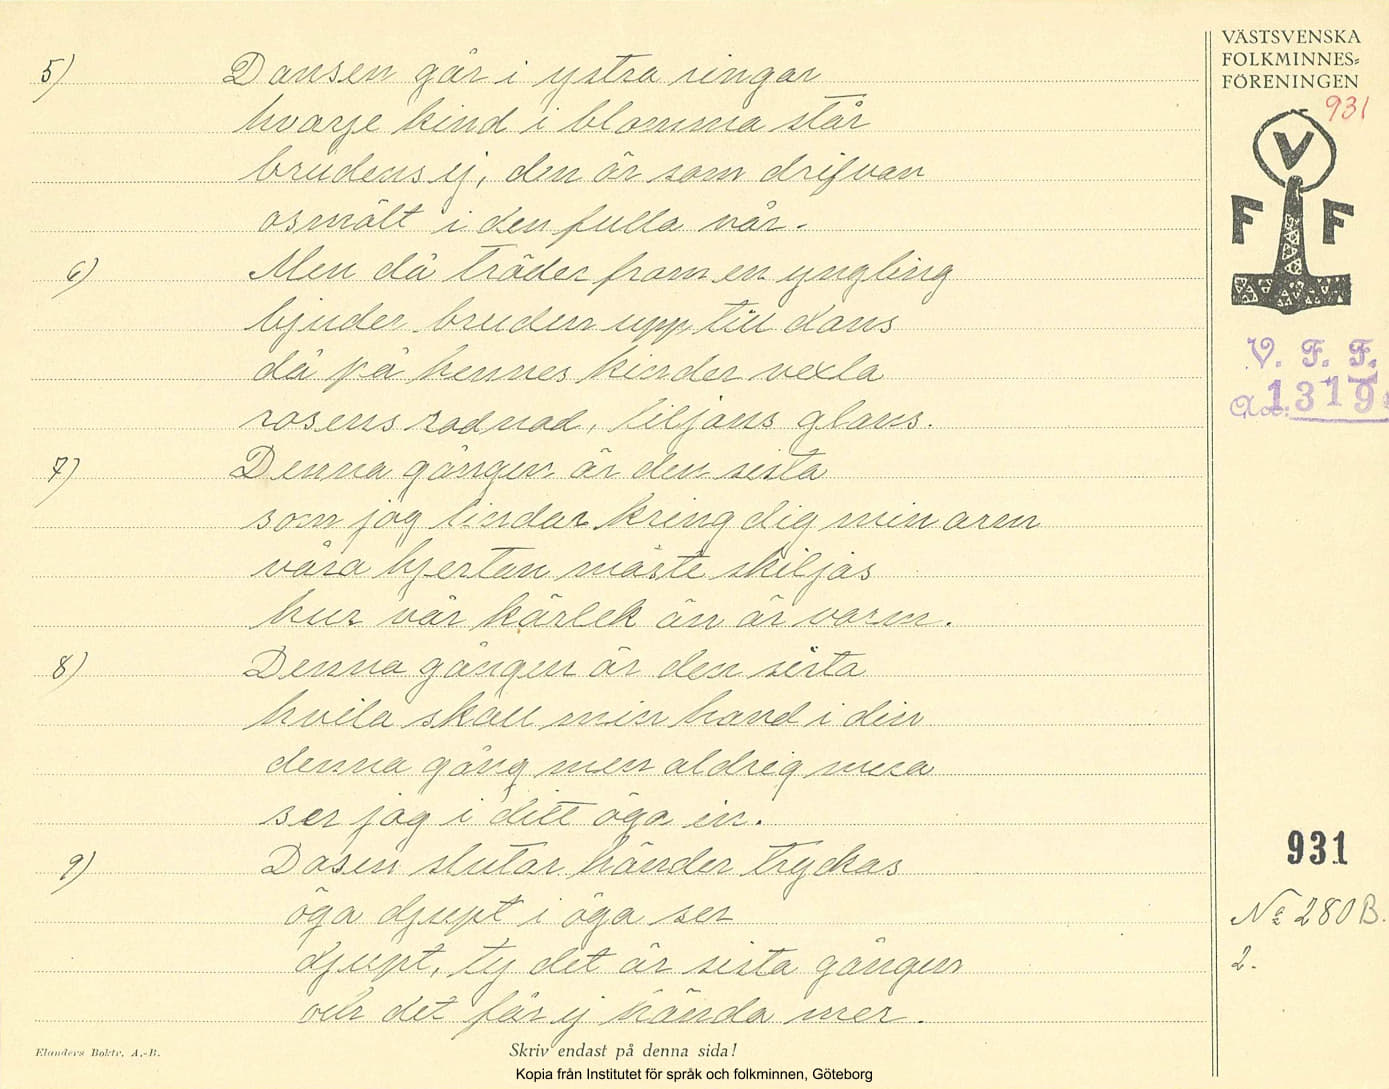 VÄSTSVENSKA
FOLKMINNES-
FÖRENINGEN
931
V
F F
V. F. F.
Acc. 1319
5) Dansen går i ystra ringar
hvarje kind i blomma står
brudens ej, den är som drifvan
osmält i den fulla vår.
6) Men då träder fram en yngling
bjuder bruden upp till dans
då på hennes kinder vexla
rosens rodnad, liljans glans.
7) Denna gången är den sista
som jag lindar kring dig min arm
våra hjertan måste skiljas
hur vår kärlek än är varm.
8) Denna gången är den sista
hvila skall min hand i din
denna gång men aldrig mera
ser jag i ditt öga in.
9) Dasen slutar händer tryckas
öga djupt i öga ser
djupt, ty det är sista gången
och det får ej hända mer.
931
No 280 B.
2.
Elanders Boktr. A.-B.
Skriv endast på denna sida!
Kopia från Institutet för språk och folkminnen, Göteborg